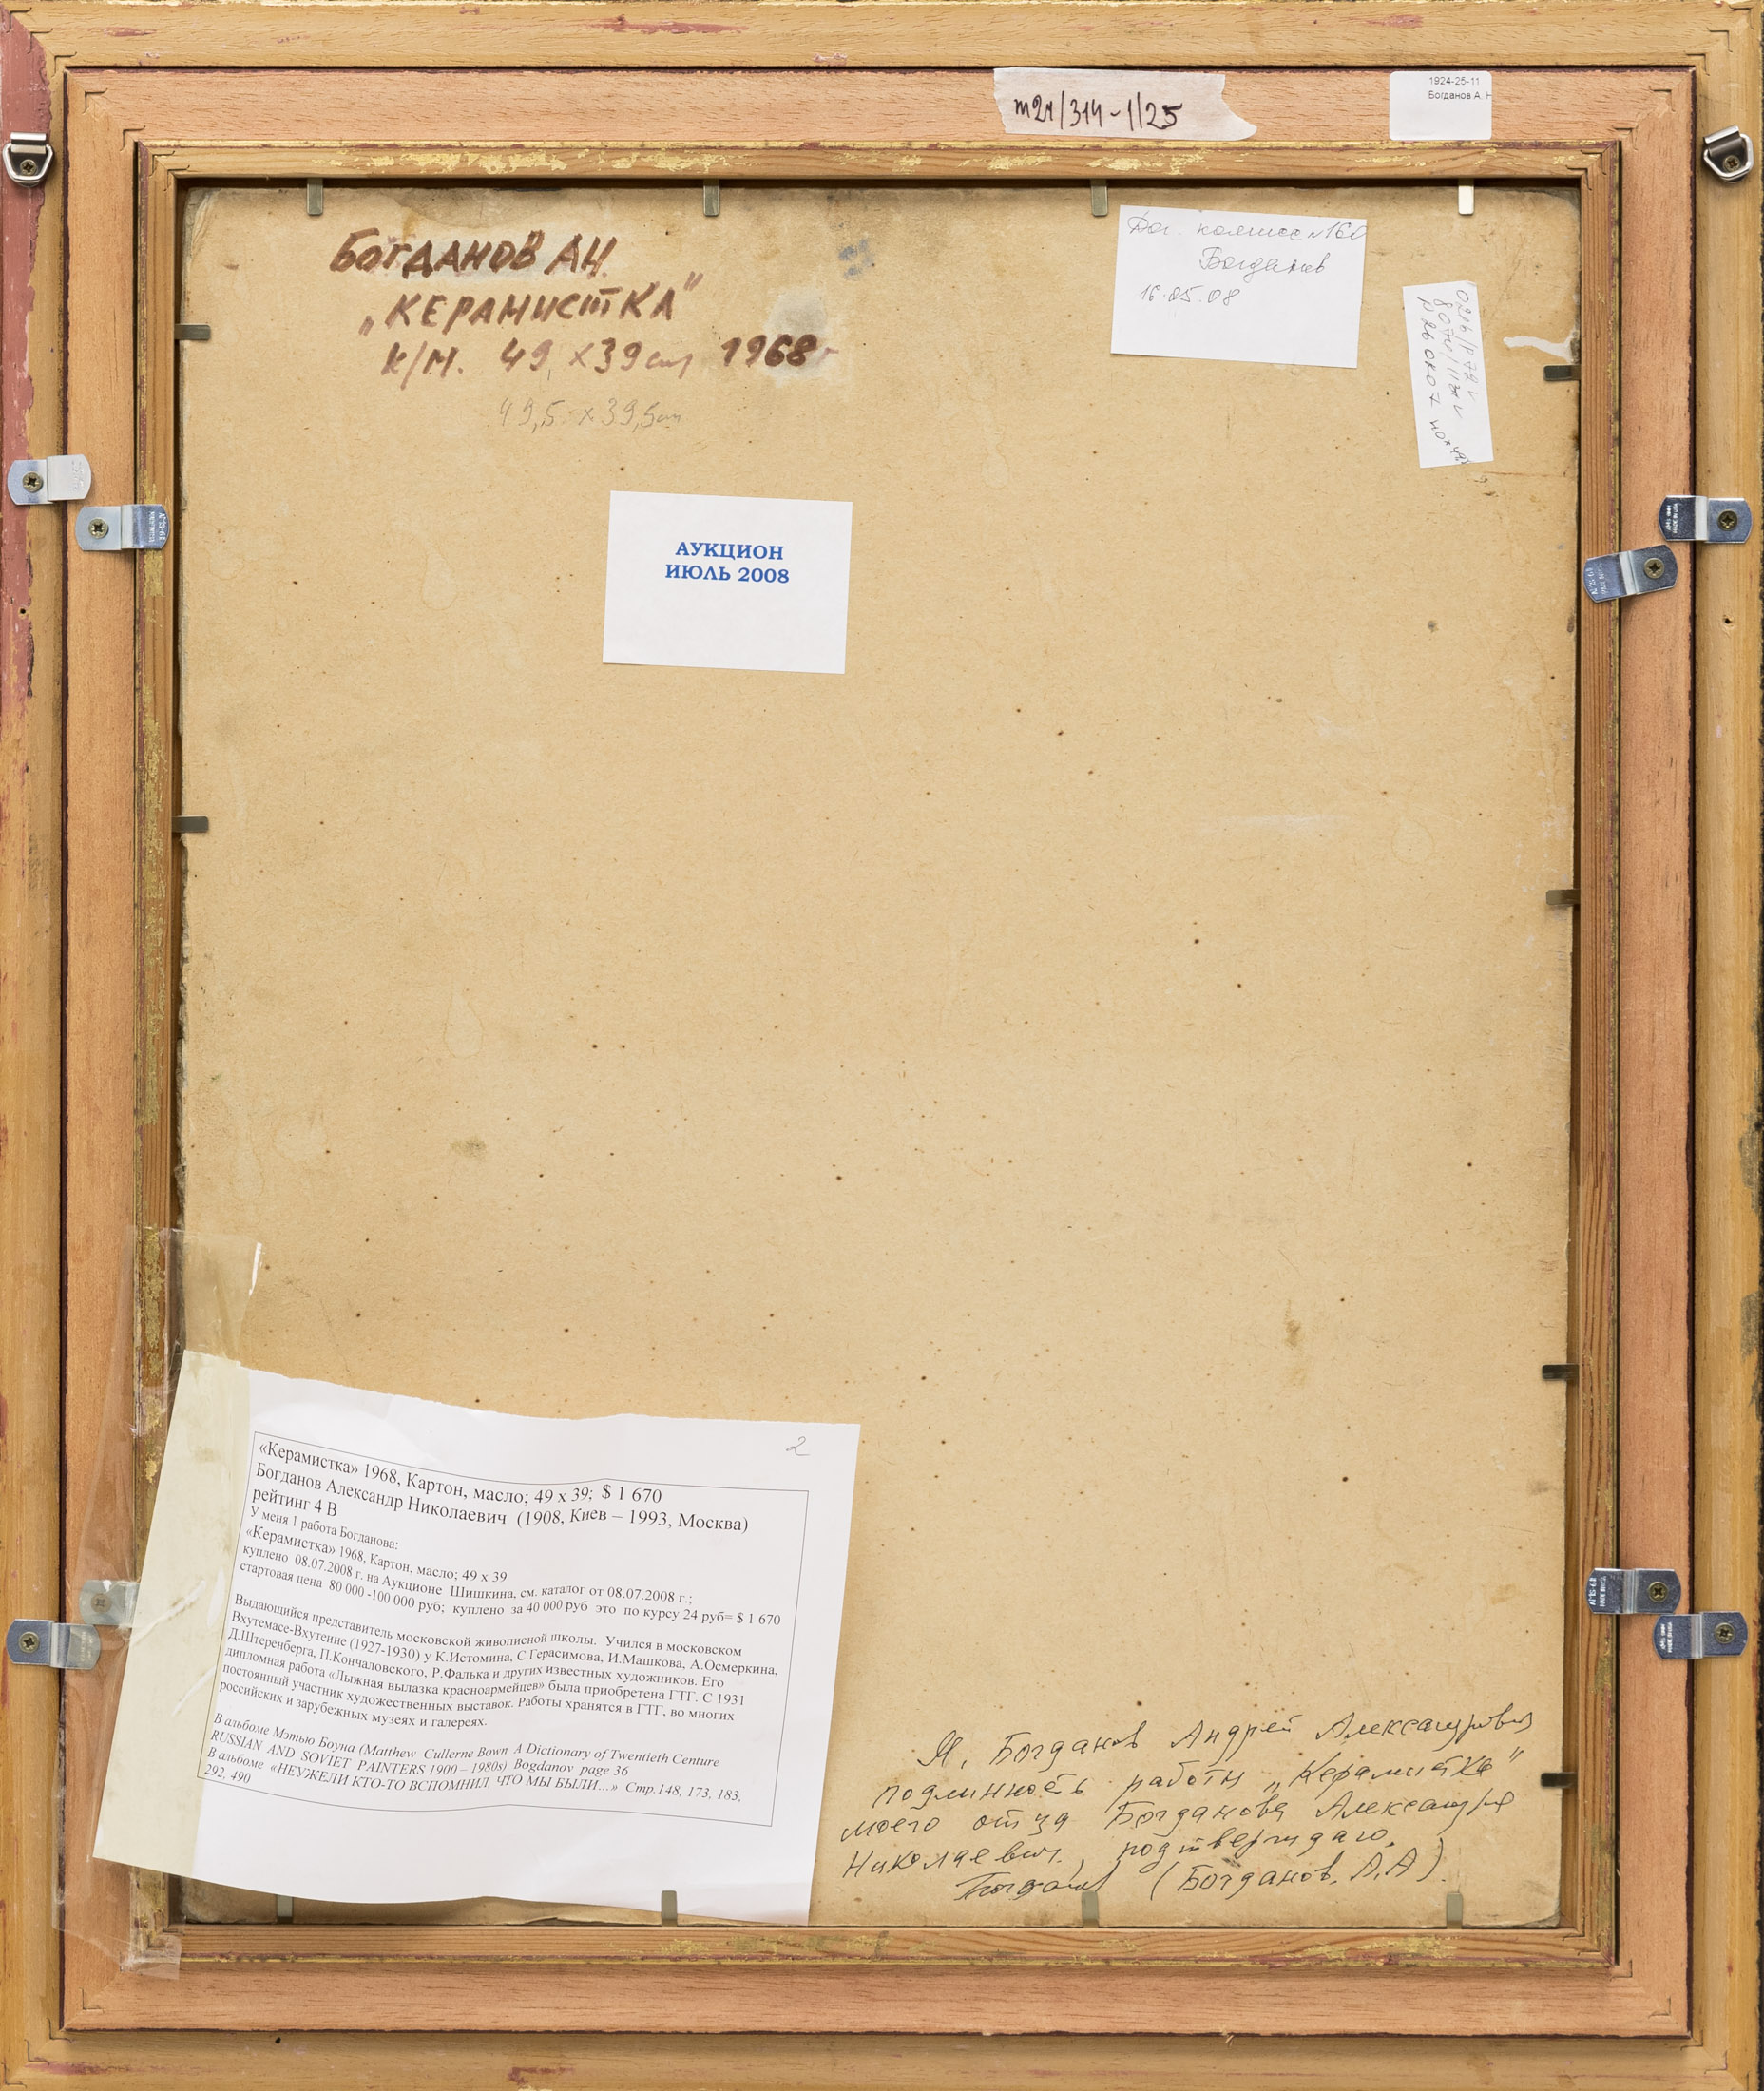 m21/314-1/25
1924-25-11
Богданов А. Н
БОГДАНОВ АН.
„КЕРАМИСТКА"
К/М. 49 х 39 см 1968г
49,5 х 39,5см
Дог. комисс №160
Богданов
16.05.08
АУКЦИОН
ИЮЛЬ 2008
2
«Керамистка» 1968, Картон, масло; 49 х 39; $ 1 670
Богданов Александр Николаевич (1908, Киев – 1993, Москва)
рейтинг 4 В
У меня 1 работа Богданова:
«Керамистка» 1968, Картон, масло; 49 х 39
куплено 08.07.2008 г. на Аукционе Шишкина, см. каталог от 08.07.2008 г.;
стартовая цена 80 000 -100 000 руб; куплено за 40 000 руб это по курсу 24 руб= $ 1 670
Выдающийся представитель московской живописной школы. Учился в московском
Вхутемасе-Вхутеине (1927-1930) у К.Истомина, С.Герасимова, И.Машкова, А.Осмеркина,
Д.Штеренберга, П.Кончаловского, Р.Фалька и других известных художников. Его
дипломная работа «Лыжная вылазка красноармейцев» была приобретена ГТГ. С 1931
постоянный участник художественных выставок. Работы хранятся в ГТГ, во многих
российских и зарубежных музеях и галереях.
В альбоме Мэтью Боуна (Matthew Cullerne Bown A Dictionary of Twentieth Centure
RUSSIAN AND SOVIET PAINTERS 1900 – 1980s) Bogdanov page 36
В альбоме «НЕУЖЕЛИ КТО-ТО ВСПОМНИЛ, ЧТО МЫ БЫЛИ...» Стр.148, 173, 183,
292, 490
Я, Богданов Андрей Александрович
подлинность работы „Керамистка"
моего отца Богданова Александра
Николаевич., подтверждаю.
Богданов (Богданов. А.А).